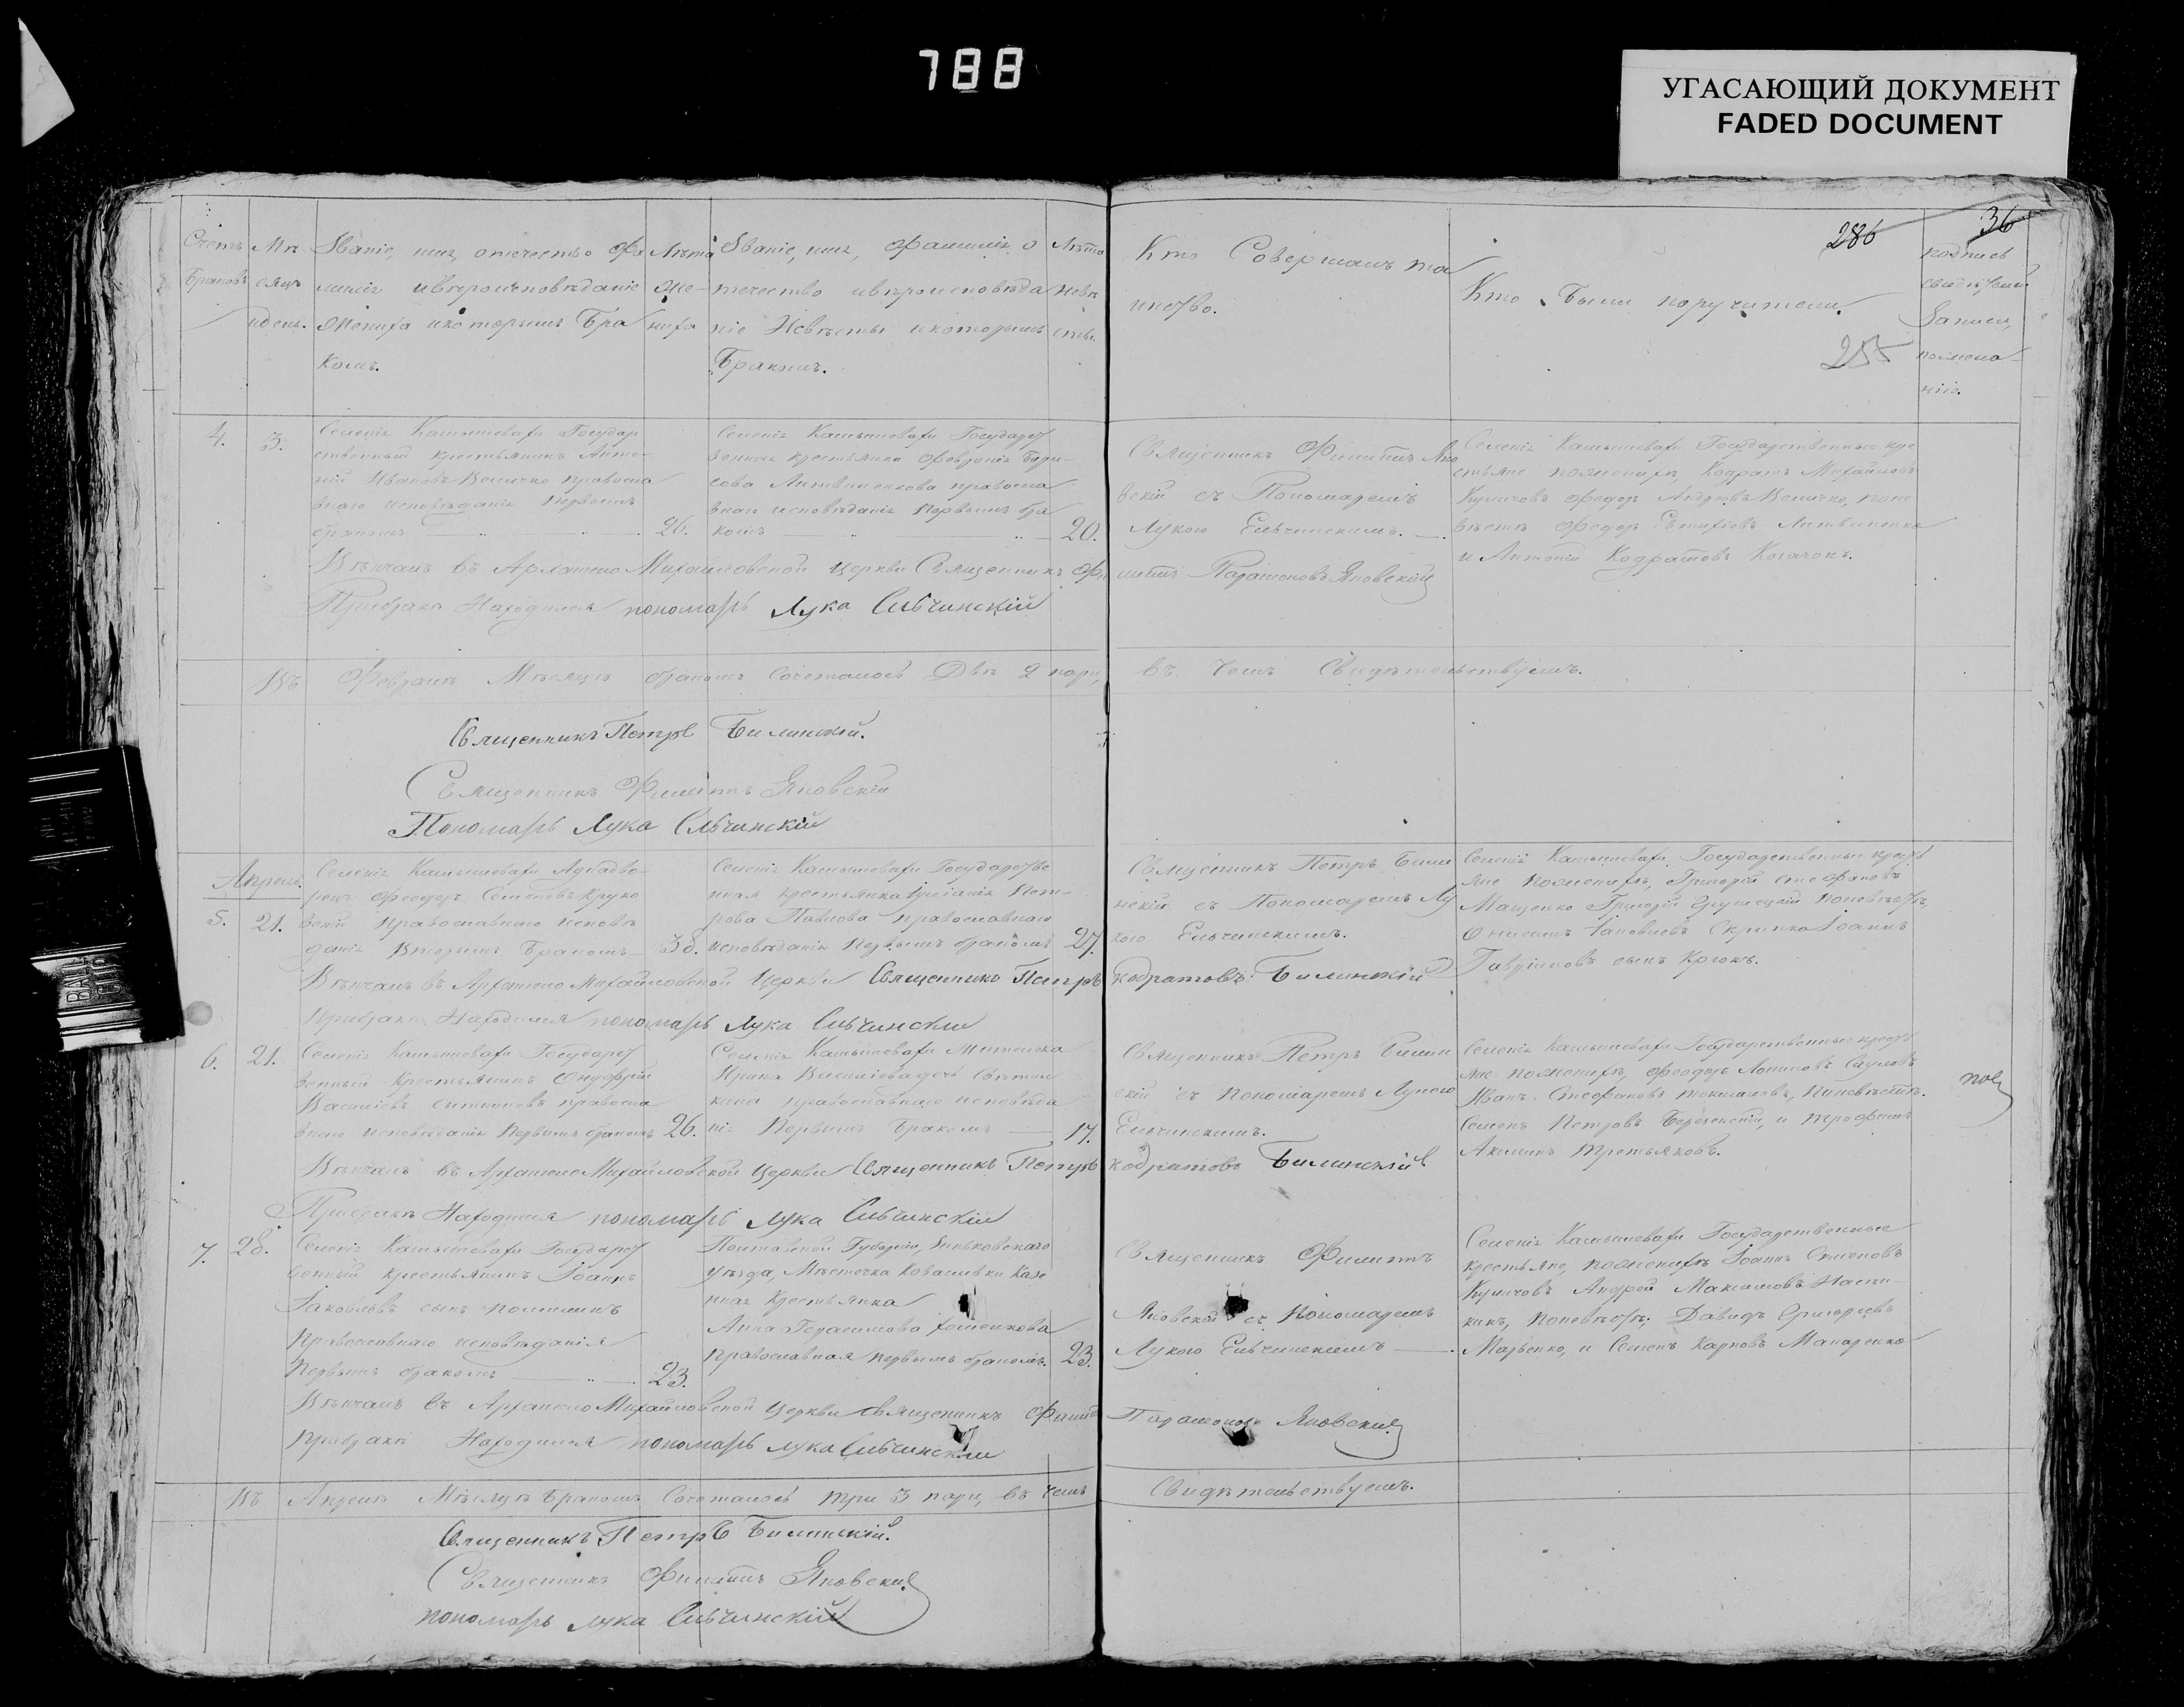 788
УГАСАЮЩИЙ ДОКУМЕНТ
FADED DOCUMENT
36
286
255
Счетъ Браковъ
Мѣсяцъ и день.
Званіе, имя, отечество Фа
милія и вѣроисповѣданіе
Жениха и которымъ Бра
комъ.
Лѣта Же-
ниха
Званіе, имя, Фамилія, о
течество и вѣроисповѣда
ніе Невѣсты и которымъ
Бракомъ.
Лѣта
Невѣ
сты.
Кто Совершалъ та
инство.
Кто Были поручители.
подпись
свидѣтелей
Записи,
по желa-
нію.
4.
3.
Селенія Камышевахи Государ
ственный крестьянинъ Анто-
ній Ивановъ Величко православ
наго исповѣданія первымъ
бракомъ
26.
Селенія Камышевахи Государст
венная крестьянка Февронія Бори-
сова Литвиненкова православ
наго исповѣданія первымъ бра
комъ
20.
Священникъ Филиппъ Яно
вскій съ Пономаремъ
Лукою Ельчинскимъ.
Селенія Камышевахи Государственные кре
стьяне по женихѣ, Кодратъ Михайловъ
Куличовъ Федоръ Андреевъ Величко, поне
вѣстѣ Федоръ Евтихіевъ Литвиненко
и Антоній Кодратовъ Козачокъ.
Вѣнчалъ въ Архангело Михайловской Церкви Священникъ Фи
липпъ Парамоновъ Яновскій
При бракѣ Находился пономарь Лука Ельчинскій
Въ Февралѣ Мѣсяцѣ бракомъ сочеталось Двѣ 2 пари,
въ чемъ Свидѣтельствуемъ.
Священникъ Петръ Билинскій.
Священникъ Филиппъ Яновскій
Пономарь Лука Ельчинскій
Апрель.
5.
21.
Селенія Камышевахи Аднадво-
рецъ Феодоръ Семеновъ Круко
вскій Православнаго исповѣ
данія Вторымъ Бракомъ
38.
Селенія Камышевахи Государстве
нная крестьянка Пет-
рова Павлова православнаго
исповѣданія первымъ бракомъ
27.
Священникъ Петръ Били
нскій съ Пономаремъ Лу
кою Ельчинскимъ.
Селенія Камышевахи Государственные кресть
яне по женихѣ, Григорій Стефановъ
Мащенко Григорій Грушецкій поневѣстѣ,
Онисимъ Іаковлевъ Скрипка Іоаннъ
Гавріиловъ сынъ Крюкъ.
Вѣнчалъ въ Архангело Михайловской Церкви Священникъ Петръ
Кодратовъ Билинскій
При бракѣ Находился пономарь Лука Ельчинскій
6.
21.
Селенія Камышевахи Государст
венный Крестьянинъ Онуфрій
Васильевъ Ситниковъ православ
наго исповѣданія первымъ бракомъ
26.
Селенія Камышевахи жителька
Ирина Василіева дочь
кина православнаго исповѣда
нія Первымъ Бракомъ
17.
Священникъ Петръ Билин
скій съ пономаремъ Лукою
Ельчинскимъ.
Селенія Камышевахи Государственные кресть
яне по женихѣ, Феодоръ Логиновъ
Иванъ Стефановъ поневѣстѣ.
Семенъ Петровъ и Трофимъ
Акимовъ Третьяковъ.
Вѣнчалъ въ Архангело Михайловской Церкви Священникъ Петръ
Кодратовъ Билинскій
При бракѣ Находился пономарь Лука Ельчинскій
7.
28.
Селенія Камышевахи Государст
венный крестьянинъ Іоаннъ
Іаковлевъ сынъ
православнаго исповѣданія
первымъ бракомъ
23.
Полтавской Губерніи, Зинковскаго
уѣзда, Мѣстечка Ковалевки казе
нная крестьянка
Анна Герасимова Хоменкова
православная первымъ бракомъ.
23.
Священникъ Филиппъ
Яновскій съ Пономаремъ
Лукою Ельчинскимъ
Селенія Камышевахи Государственные
крестьяне, по женихѣ Іоаннъ Семеновъ
Куличовъ Андрей Максимовъ
поневѣстѣ; Давидъ Григоріевъ
Марченко, и Семенъ Карповъ Макаренко
Вѣнчалъ въ Архангело Михайловской Церкви Священникъ Филиппъ
Парамоновъ Яновскій
При бракѣ Находился пономарь Лука Ельчинскій
Въ Апрелѣ Мѣсяцѣ Бракомъ Сочеталось три 3 пари, въ чемъ
Свидѣтельствуемъ.
Священникъ Петръ Билинскій.
Священникъ Филиппъ Яновскій
пономарь Лука Ельчинскій